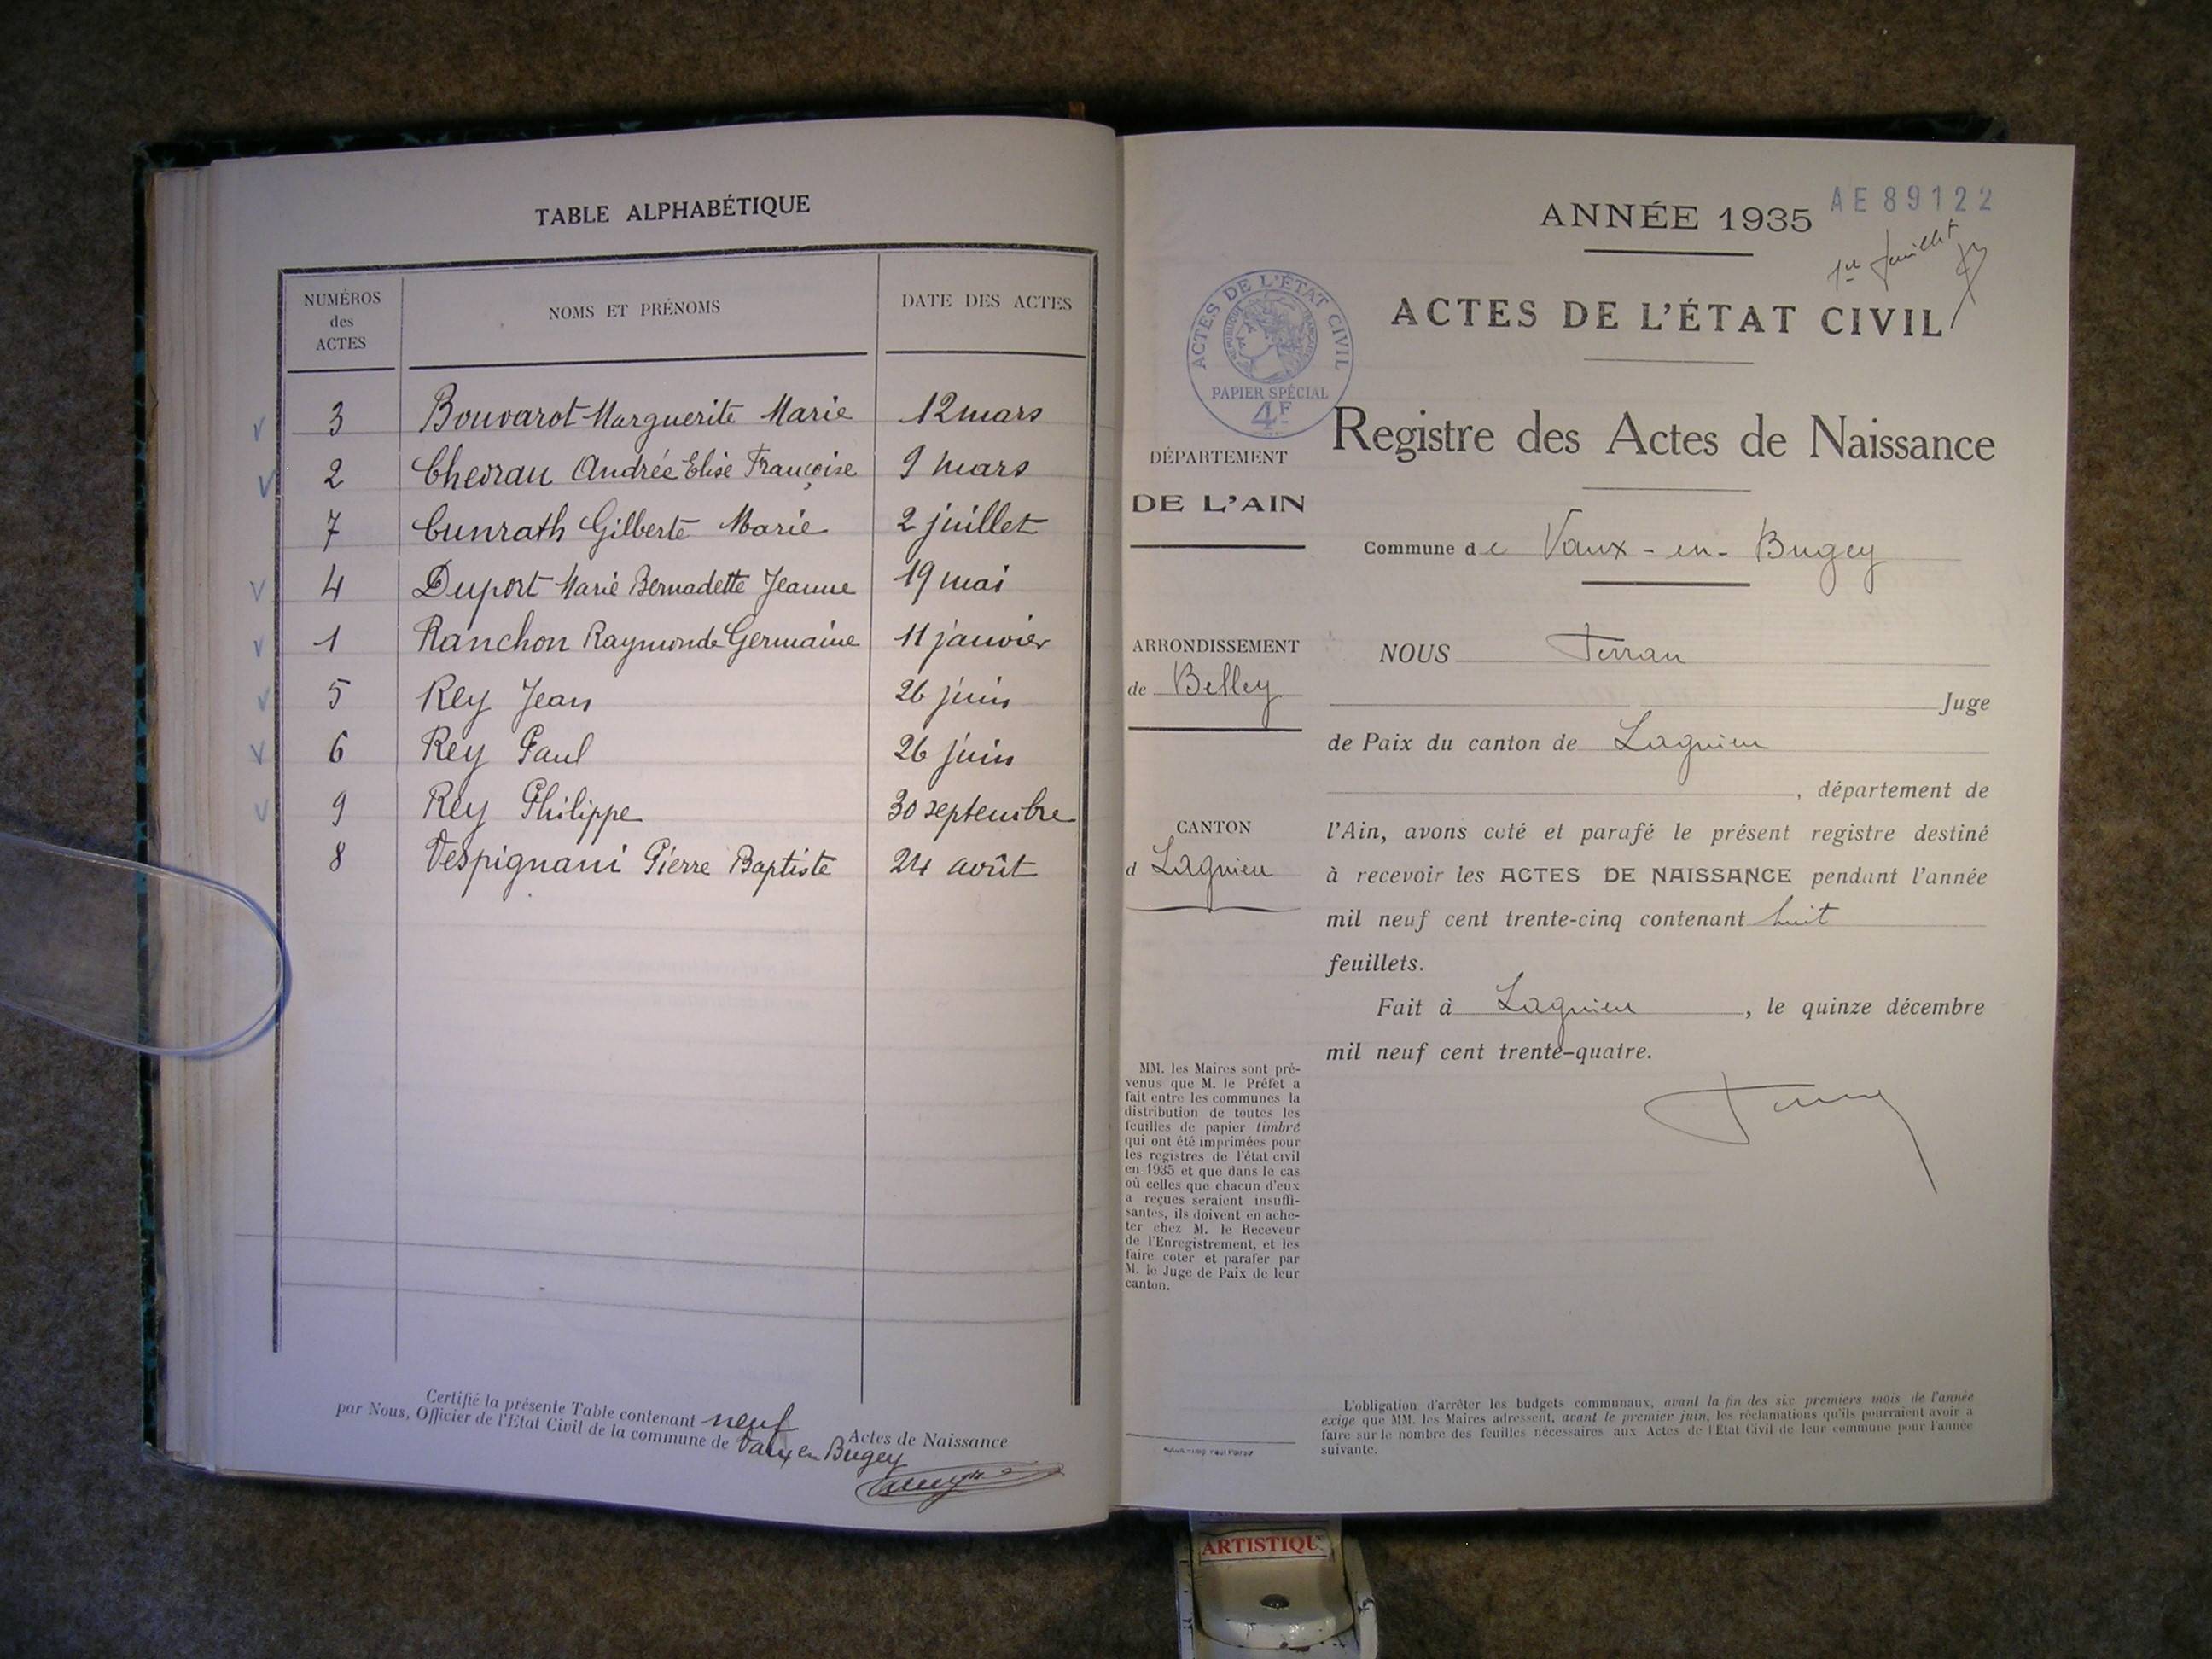 TABLE ALPHABÉTIQUE
NUMÉROS des ACTES NOMS ET PRÉNOMS DATE DES ACTES
3 Bouvarot Marguerite Marie 12 mars
2 Chevrau Andrée Elise Françoise 9 mars
7 Cunrath Gilberte Marie 2 juillet
4 Duport Marie Bernadette Jeanne 19 mai
1 Ranchon Raymonde Germaine 11 janvier
5 Rey Jean 26 juin
6 Rey Paul 26 juin
9 Rey Philippe 30 septembre
8 Vespignani Pierre Baptiste 24 août
Certifié la présente Table contenant neuf Actes de Naissance
par Nous, Officier de l'Etat Civil de la commune de Vaux en Bugey
AE89122
ANNÉE 1935
1er feuillet
ACTES DE L'ÉTAT CIVIL
ACTES DE L'ÉTAT CIVIL
RÉPUBLIQUE FRANÇAISE
PAPIER SPÉCIAL
4F
Registre des Actes de Naissance
DÉPARTEMENT
DE L'AIN
Commune de Vaux-en-Bugey
ARRONDISSEMENT
de Belley
CANTON
d Lagnieu
MM. les Maires sont pré-
venus que M. le Préfet a
fait entre les communes la
distribution de toutes les
feuilles de papier timbré
qui ont été imprimées pour
les registres de l'état civil
en 1935 et que dans le cas
où celles que chacun d'eux
a reçues seraient insuffi-
santes, ils doivent en ache-
ter chez M. le Receveur
de l'Enregistrement, et les
faire coter et parafer par
M. le Juge de Paix de leur
canton.
NOUS Ferran
Juge
de Paix du canton de Lagnieu
, département de
l'Ain, avons coté et parafé le présent registre destiné
à recevoir les ACTES DE NAISSANCE pendant l'année
mil neuf cent trente-cinq contenant huit
feuillets.
Fait à Lagnieu, le quinze décembre
mil neuf cent trente-quatre.
L'obligation d'arrêter les budgets communaux, avant la fin des six premiers mois de l'année
exige que MM. les Maires adressent, avant le premier juin, les réclamations qu'ils pourraient avoir à
faire sur le nombre des feuilles nécessaires aux Actes de l'Etat Civil de leur commune pour l'année
suivante.
ARTISTIQU